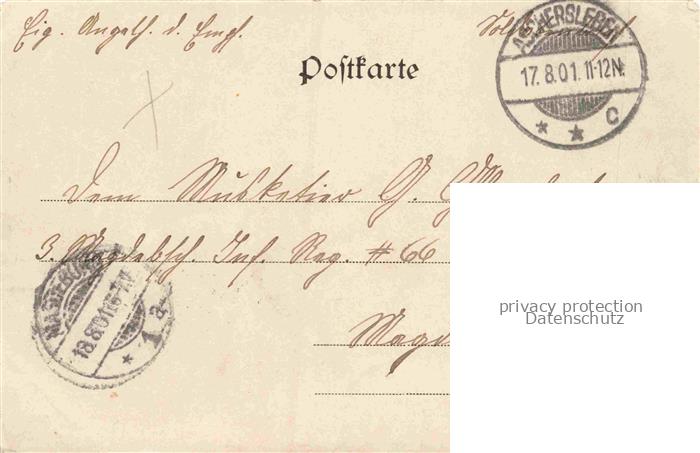 Eig. Angelh. d. Empf.
Postkarte
ASCHERSLEBEN
17.8.01.11-12N.
* * C
Dem Musketier G.
3. Magdebch. Inf. Reg. # 66
MAGDEBURG
18.8.01.6-7V
* 1 a
Magd
privacy protection
Datenschutz